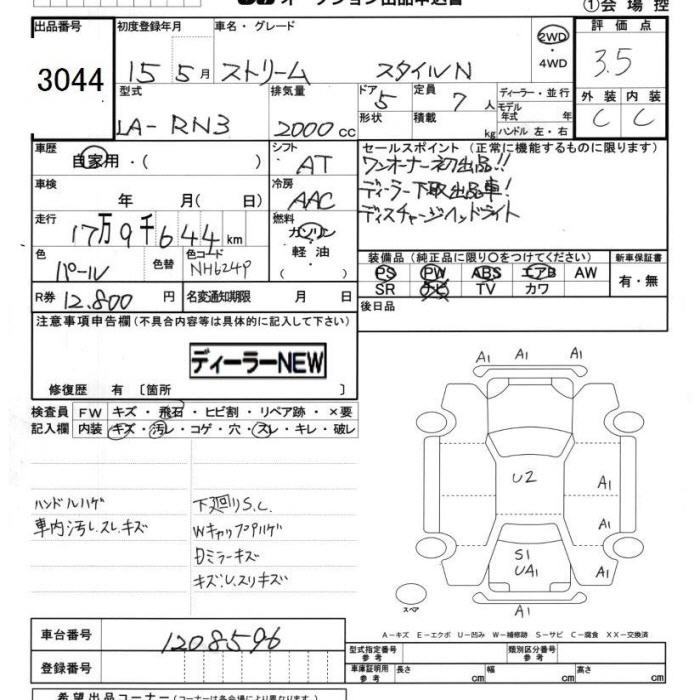 オークション出品申込書
①会場控
出品番号 3044
初度登録年月 15 5月
車名・グレード ストリーム スタイルN
2WD・4WD
評価点 3.5
型式 LA-RN3
排気量 2000cc
ドア 5
形状
定員 7人
積載 kg
ディーラー・並行
モデル年式 年
ハンドル 左・右
外装 C
内装 C
車歴 自家用・( )
シフト AT
車検 年 月( 日)
冷房 AAC
走行 17万9千644km
燃料 ガソリン・軽油・( )
色 パール
色替
色コード NH624P
R券 12,800円
名変通知期限 月 日
セールスポイント(正常に機能するものに限ります)
ワンオーナー初出品!!
ディーラー下取出品車!
ディスチャージヘッドライト
装備品(純正品に限り○をつけてください)
PS PW ABS エアB AW
SR ナビ TV カワ
新車保証書
有・無
後日品
注意事項申告欄(不具合内容等は具体的に記入して下さい)
ディーラーNEW
修復歴 有〔箇所 〕
検査員記入欄
FW キズ・飛石・ヒビ割・リペア跡・×要
内装 キズ・汚レ・コゲ・穴・スレ・キレ・破レ
ハンドルハゲ
車内汚レ.スレ.キズ
下廻りS.C.
Wキャップハゲ
日ミラーキズ
キズ.U.スリキズ
A1 A1 A1
U2
A1
A1
A1
S1
UA1
A1
スペア
A-キズ E-エクボ U-凹み W-補修跡 S-サビ C-腐食 XX-交換済
車台番号 1208596
登録番号
型式指定番号 参考
類別区分番号 参考
車庫証明用 参考 長さ cm 幅 cm 高さ cm
希望出品コーナー(コーナーは各会場により異なります)